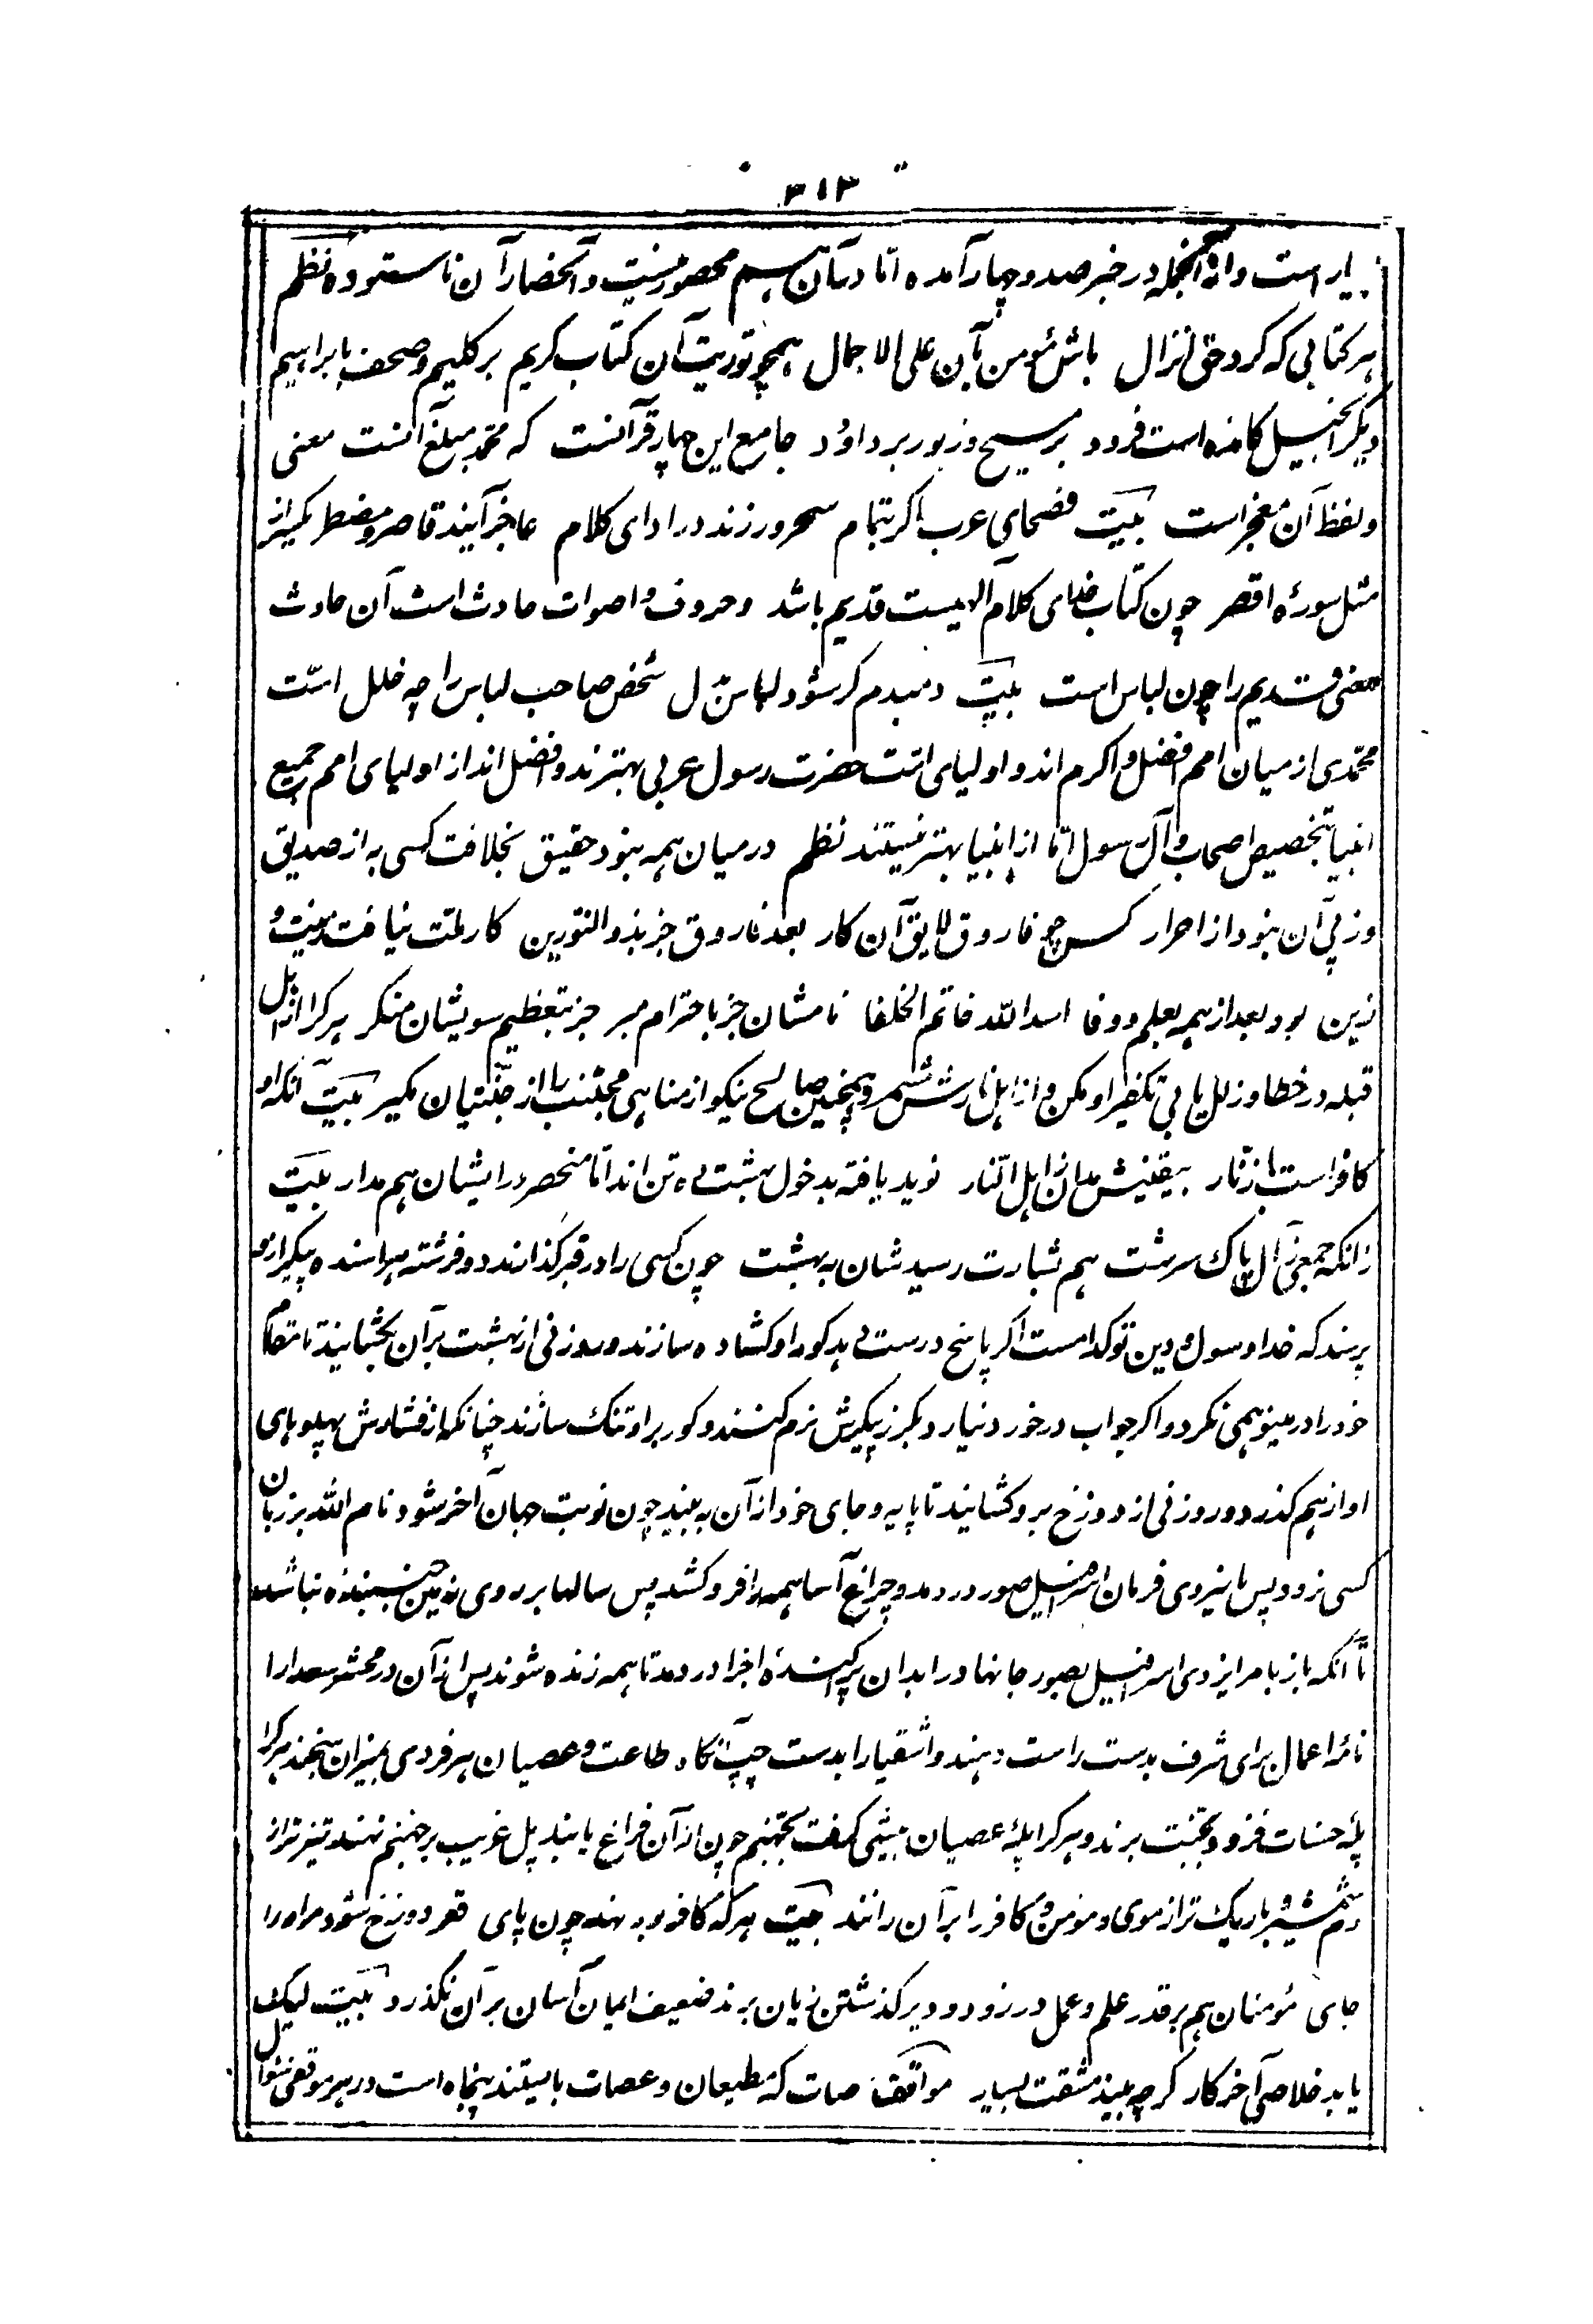 ۳۱۳
یار است و از آنجمله در خبر صد و چهار آمده اما در آن هم محصور نیست و انحصار آن ناستوده نظم
هر کتابی که کرد حق انزال باش مؤمن بآن علی الاجمال همچو توریت آن کتاب کریم بر کلیم و صحف بابراهیم
دیگر انجیل کامده است فرود بر مسیح و زبور بر داود جامع این چهار قرآنست که محمد مبلغ آنست معنی
و لفظ آن معجز است بیت فصحای عرب اگر بتمام سحر ورزند در ادای کلام عاجز آیند قاصر و مضطر یکسر از
مثل سورهٔ اقصر چون کتاب خدای کلام الهیست قدیم باشد و حروف و اصوات حادث است آن حادث
معنی قدیم را چون لباس است بیت دمبدم گر شود لباس بدل شخص صاحب لباس را چه خلل امت
محمدی از میان امم افضل و اکرم اند و اولیای امت حضرت رسول عربی بهترند و افضل اند از اولیای امم جمیع
انبیا بتخصیص اصحاب و آل رسول اما از انبیا بهتر نیستند نظم در میان همه نبود حقیق بخلافت کسی به از صدیق
وز پی آن نبود از احرار کس چو فاروق لایق آن کار بعد فاروق جز بذوالنورین کار ملت نیافت زینت و
زین بود بعد از همه بعلم و وفا اسد الله خاتم الخلفا نامشان جز باحترام مبر جز بتعظیم سویشان منگر هر کرا از اهل
قبله در خطا و زلل یابی تکفیر او مکن و از اهل نارش مشمر و همچنین صالح نیکو از مناهی مجتنب را از جنتیان مگیر بیت آنکه او
کافر است بیقینش بدان از اهل النار نوید یافته بدخول بهشت ده تن اند اما منحصر در ایشان هم مدار بیت
زانکه جمعی ز آل پاک سرشت هم بشارت رسید شان به بهشت چون کسی را در قبر گذارند دو فرشته هراسنده پیکر ازو
پرسند که خدا و رسول و دین تو کدامست اگر پاسخ درست دهد گور او گشاده سازند و روزنی از بهشت بر آن بگشایند تا مقام
خود را در مینو همی نگرد و اگر جواب در خور دنیارد بگرز پیکرش نرم کنند و گور بر او تنگ سازند چنانکه از فشارش پهلوهای
او از هم گذرد و روزنی از دوزخ برو گشایند تا پایه و جای خود از آن به بیند چون نوبت جهان آخر شود نام الله بر زبان
کسی نرود پس با نیروی فرمان اسرافیل صور در دمد و چراغ آسا همه را فرو کشد پس سالها بر روی زمین جنبنده نباشد
تا آنکه باز بامر ایزدی اسرافیل بصور جانها در ابدان پراکنده اجزا در دمد تا همه زنده شوند پس از آن در محشر سعدا را
نامهٔ اعمال برای شرف بدست راست دهند و اشقیا را بدست چپ آنگاه طاعت و عصیان هر فردی بمیزان سنجند هر کرا
پلهٔ حسنات فزود بجنت برند و هر کرا پلهٔ عصیان بیشی گرفت بجهنم چون از آن فراغ یابند پل غریب بر جهنم نهند تیزتر از
دم شمشیر و باریک تر از موی و مؤمن و کافر را بر آن رانند بیت هر که کافر بود نهد چون پای قعر دوزخ شود مر او را
جای مؤمنان هم بر قدر علم و عمل در زود و دیر گذشتن زیان برند ضعیف ایمان آسان بر آن نگذرد بیت لیک
یابد خلاص آخر کار گرچه بیند مشقت بسیار مواقف که مطیعان و عصات بایستند پنجاه است در هر موقفی سؤال